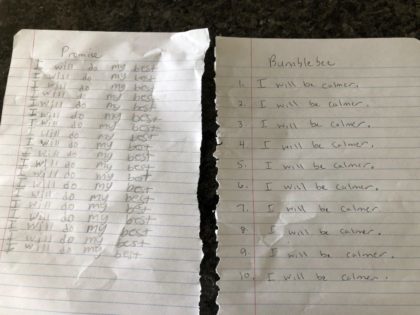 Promise
I will do my best
I will do my best
I will do my best
I will do my best
I will do my best
I will do my best
I will do my best
I will do my best
I will do my best
I will do my best
I will do my best
I will do my best
I will do my best
I will do my best
I will do my best
I will do my best
I will do my best
Bumblebee
1. I will be calmer.
2. I will be calmer.
3. I will be calmer.
4. I will be calmer.
5. I will be calmer.
6. I will be calmer.
7. I will be calmer.
8. I will be calmer.
9. I will be calmer.
10. I will be calmer.